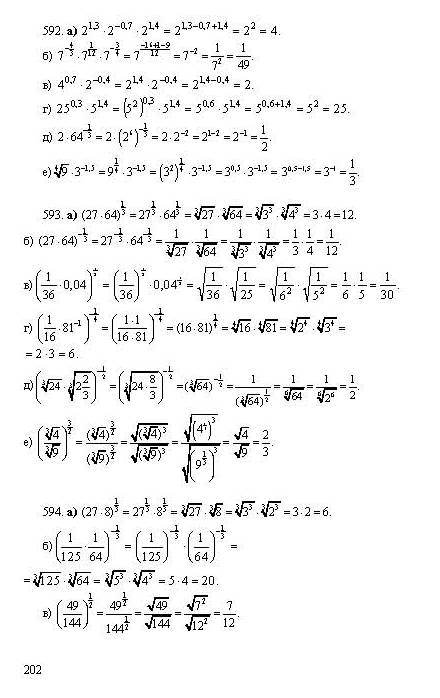 592. а) 2^{1,3} · 2^{-0,7} · 2^{1,4} = 2^{1,3-0,7+1,4} = 2^2 = 4.
б) 7^{-\frac{4}{3}} · 7^{\frac{1}{12}} · 7^{-\frac{3}{4}} = 7^{\frac{-16+1-9}{12}} = 7^{-2} = \frac{1}{7^2} = \frac{1}{49}.
в) 4^{0,7} · 2^{-0,4} = 2^{1,4} · 2^{-0,4} = 2^{1,4-0,4} = 2.
г) 25^{0,3} · 5^{1,4} = (5^2)^{0,3} · 5^{1,4} = 5^{0,6} · 5^{1,4} = 5^{0,6+1,4} = 5^2 = 25.
д) 2 · 64^{-\frac{1}{3}} = 2 · (2^6)^{-\frac{1}{3}} = 2 · 2^{-2} = 2^{1-2} = 2^{-1} = \frac{1}{2}.
е) \sqrt[4]{9} · 3^{-1,5} = 9^{\frac{1}{4}} · 3^{-1,5} = (3^2)^{\frac{1}{4}} · 3^{-1,5} = 3^{0,5} · 3^{-1,5} = 3^{0,5-1,5} = 3^{-1} = \frac{1}{3}.
593. а) (27 · 64)^{\frac{1}{3}} = 27^{\frac{1}{3}} · 64^{\frac{1}{3}} = \sqrt[3]{27} · \sqrt[3]{64} = \sqrt[3]{3^3} · \sqrt[3]{4^3} = 3 · 4 = 12.
б) (27 · 64)^{-\frac{1}{3}} = 27^{-\frac{1}{3}} · 64^{-\frac{1}{3}} = \frac{1}{\sqrt[3]{27}} · \frac{1}{\sqrt[3]{64}} = \frac{1}{\sqrt[3]{3^3}} · \frac{1}{\sqrt[3]{4^3}} = \frac{1}{3} · \frac{1}{4} = \frac{1}{12}.
в) (\frac{1}{36} · 0,04)^{\frac{1}{2}} = (\frac{1}{36})^{\frac{1}{2}} · 0,04^{\frac{1}{2}} = \sqrt{\frac{1}{36}} · \sqrt{\frac{1}{25}} = \sqrt{\frac{1}{6^2}} · \sqrt{\frac{1}{5^2}} = \frac{1}{6} · \frac{1}{5} = \frac{1}{30}.
г) (\frac{1}{16} · 81^{-1})^{-\frac{1}{4}} = (\frac{1·1}{16·81})^{-\frac{1}{4}} = (16 · 81)^{\frac{1}{4}} = \sqrt[4]{16} · \sqrt[4]{81} = \sqrt[4]{2^4} · \sqrt[4]{3^4} =
= 2 · 3 = 6.
д) (\sqrt[3]{24} · \sqrt[3]{2\frac{2}{3}})^{-\frac{1}{2}} = (\sqrt[3]{24 · \frac{8}{3}})^{-\frac{1}{2}} = (\sqrt[3]{64})^{-\frac{1}{2}} = \frac{1}{(\sqrt[3]{64})^{\frac{1}{2}}} = \frac{1}{\sqrt[6]{64}} = \frac{1}{\sqrt[6]{2^6}} = \frac{1}{2}.
е) (\frac{\sqrt[3]{4}}{\sqrt[3]{9}})^{\frac{3}{2}} = \frac{(\sqrt[3]{4})^{\frac{3}{2}}}{(\sqrt[3]{9})^{\frac{3}{2}}} = \frac{\sqrt{(\sqrt[3]{4})^3}}{\sqrt{(\sqrt[3]{9})^3}} = = \frac{\sqrt{4}}{\sqrt{9}} = \frac{2}{3}.
594. а) (27 · 8)^{\frac{1}{3}} = 27^{\frac{1}{3}} · 8^{\frac{1}{3}} = \sqrt[3]{27} · \sqrt[3]{8} = \sqrt[3]{3^3} · \sqrt[3]{2^3} = 3 · 2 = 6.
б) (\frac{1}{125} · \frac{1}{64})^{-\frac{1}{3}} = (\frac{1}{125})^{-\frac{1}{3}} · (\frac{1}{64})^{-\frac{1}{3}} =
= \sqrt[3]{125} · \sqrt[3]{64} = \sqrt[3]{5^3} · \sqrt[3]{4^3} = 5 · 4 = 20.
в) (\frac{49}{144})^{\frac{1}{2}} = \frac{49^{\frac{1}{2}}}{144^{\frac{1}{2}}} = \frac{\sqrt{49}}{\sqrt{144}} = \frac{\sqrt{7^2}}{\sqrt{12^2}} = \frac{7}{12}.
202